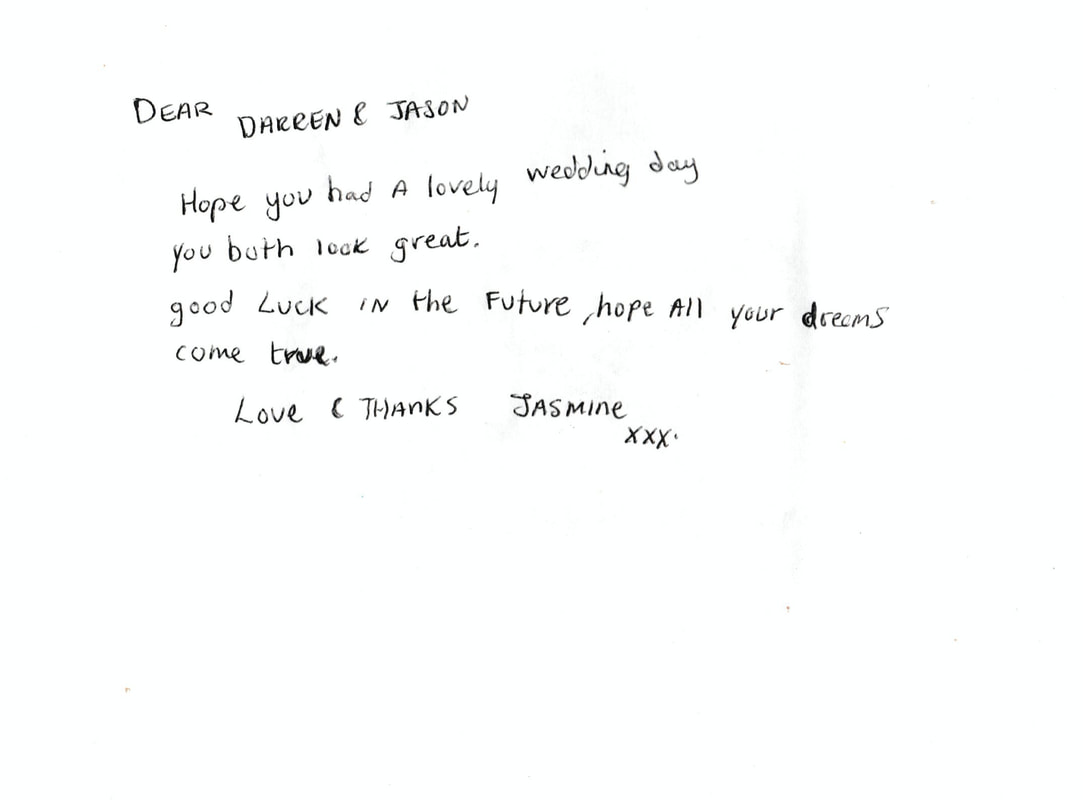 DEAR DARREN & JASON
Hope you had A lovely wedding day
you both look great.
good Luck IN the Future, hope All your dreams
come true.
Love & THANKS JASMINE
xxx.